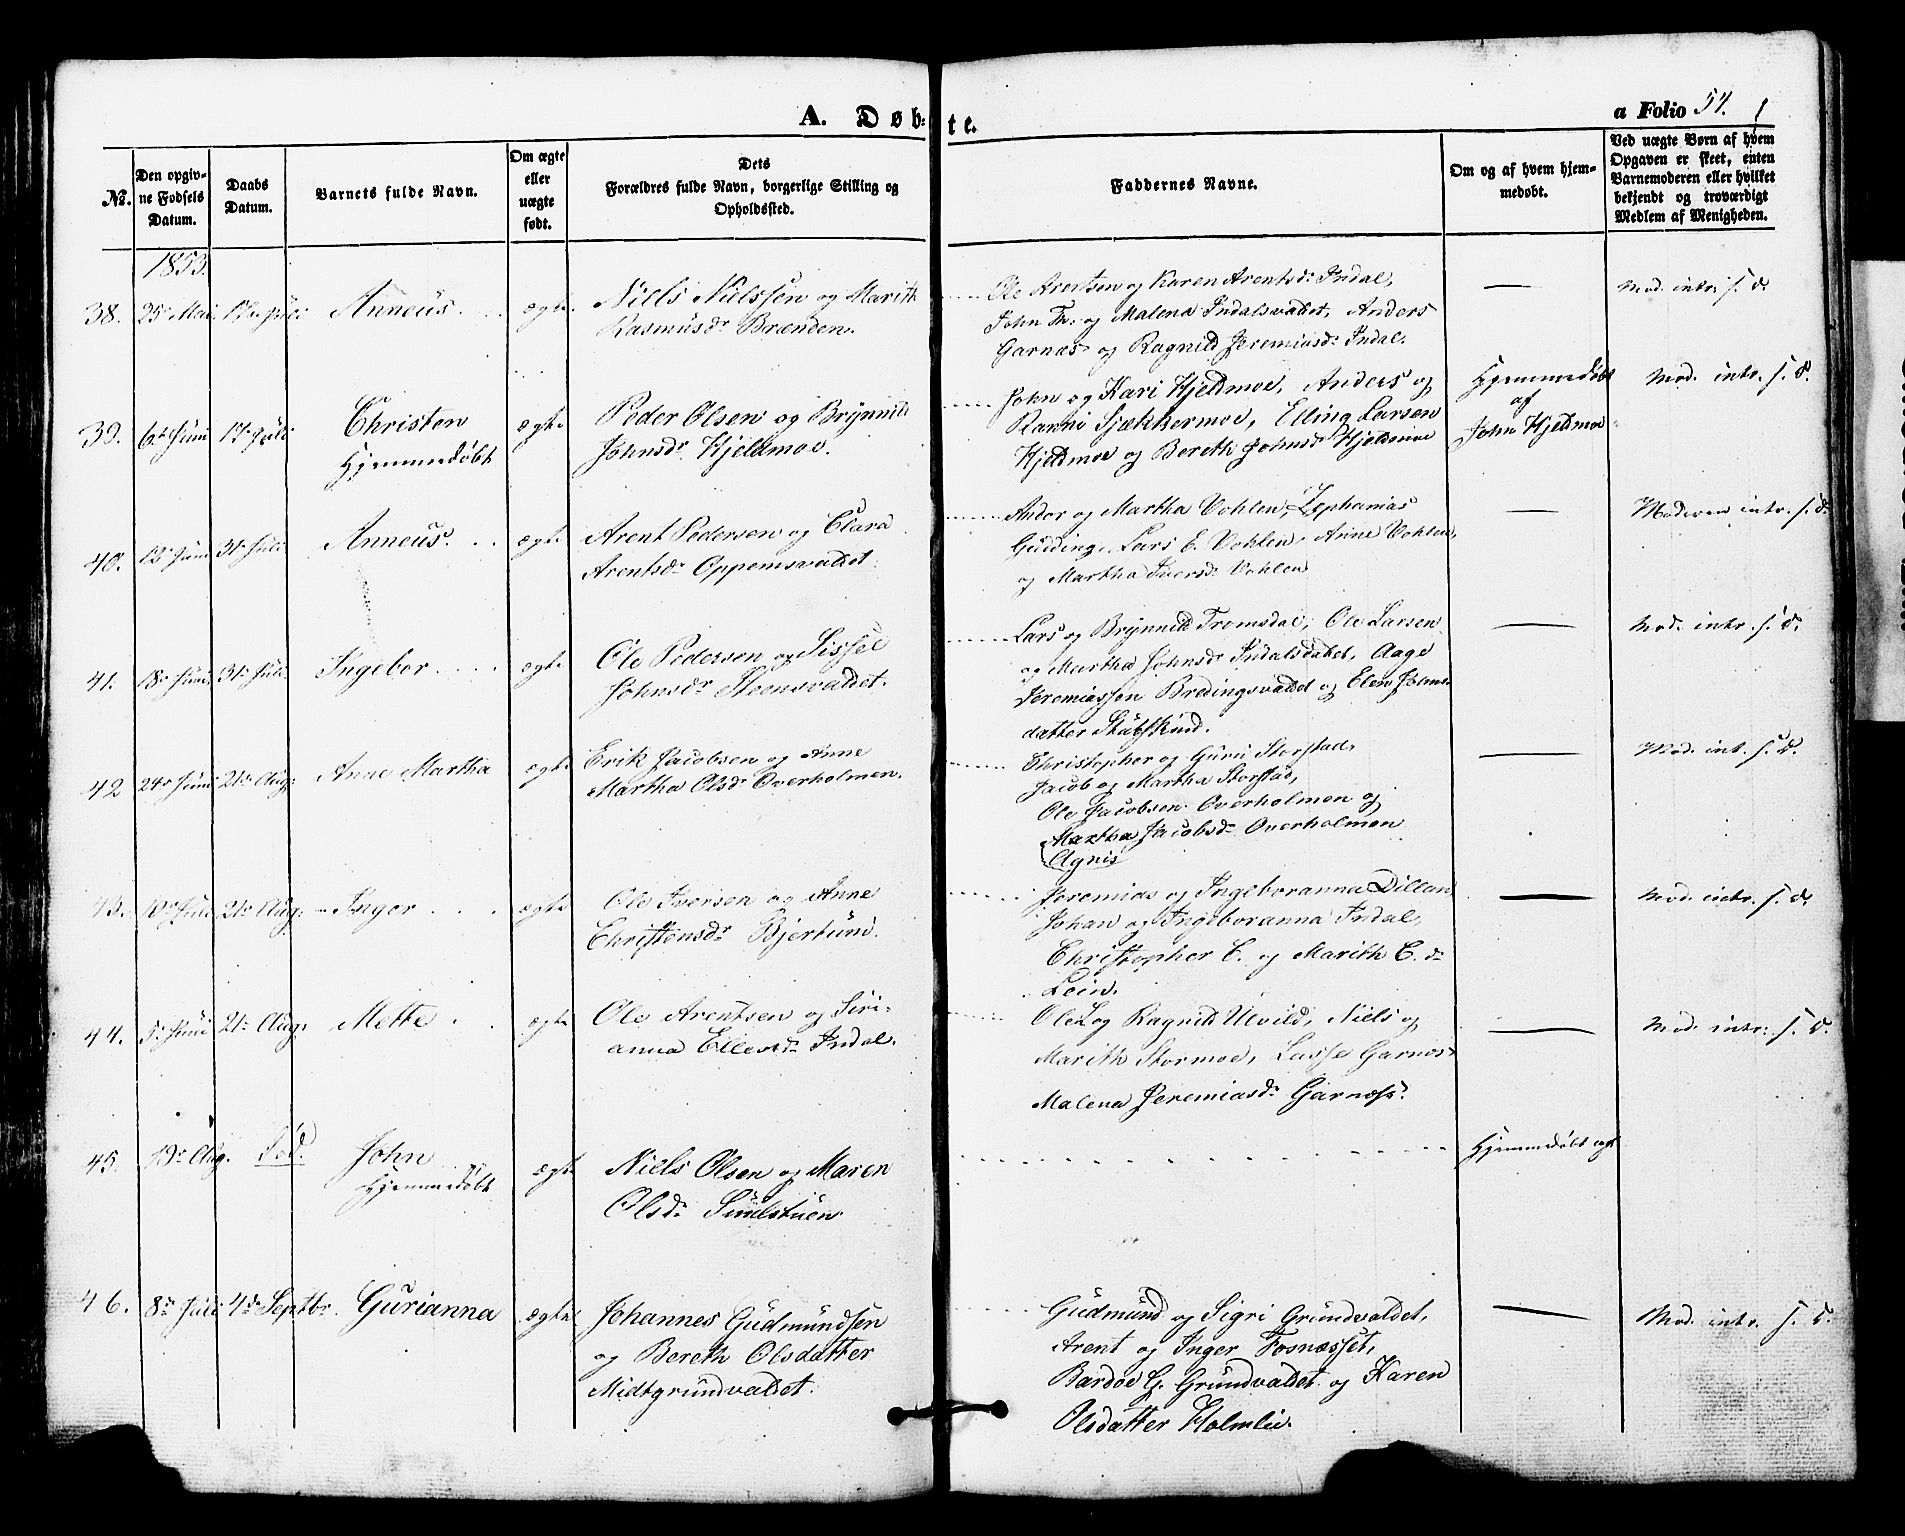 A. Døbte.
a Folio 54.
No.
Den opgivne Fødsels Datum.
Daabs Datum.
Barnets fulde Navn.
Om ægte eller uægte født.
Dets Forældres fulde Navn, borgerlige Stilling og Opholdssted.
Faddernes Navne.
Om og af hvem hjemmedøbt.
Ved uægte Børn af hvem Opgaven er skeet, enten Barnemoderen eller hvilket bekjendt og troværdigt Medlem af Menigheden.
1853.
38. 25de Mai 17de Juli Anneus. ægte
Niels Nielssen og Marith
Rasmusdr Brænden.
Ole Arentsen og Karen Arentsdr Indal,
John Th: og Malena Indalsvaldet, Anders
Garnæs og Ragnild Jeremiasdr Indal.
—
Mod. intr. s. d.
39. 6te Juni 17de Juli Christen
Hjemmedøbt
ægte
Peder Olsen og Brynnild
Johnsdr Hjeldmoe.
John og Kari Hjeldmoe, Anders og
Ranni Sjækkermoe, Elling Larsen
Hjeldmoe og Bereth Johnsdr Hjeldmoe
Hjemmedøbt
af
John Hjeldmoe
Mod. intr. s. d.
40. 12te Juni 31te Juli Anneus. ægte
Arent Pedersen og Clara
Arentsdr Oppemsvaldet.
Andor og Martha Vohlen, Zephanias
Gudding, Lars E. Vohlen, Anne Vohlen,
og Martha Iversdr Vohlen
—
Moderen intr. s. d.
41. 18de Juni 31te Juli Ingebor ægte
Ole Pedersen og Sissel
Johnsdr Steensvaldet.
Lars og Brynnild Tromsdal, Ole Larsen
og Martha Johnsdr Indalsvaldet, Aage
Jeremiassen Bredingsvaldet og Elen Johns-
datter Stubskind.
—
Mod. intr. s. d.
42 24de Juni 21de Aug: Anne Martha ægte
Erik Jacobsen og Anne
Martha Olsdr Overholmen.
Christopher og Guru Storstad,
Jacob og Martha Storstad,
Ole Jacobsen Overholmen og
Martha Jacobsdr Overholmen
(Agnis)
—
Mod. int. s. d.
43. 10de Juli 21de Aug: Inger ægte
Ole Iversen og Anne
Christensdr Bjertuun.
Jeremias og Ingeboranna Dillan,
Johan og Ingeboranna Indal,
Christopher C. og Marith C. dr
Lein.
—
Mod. intr. s. d.
44. 5te Juni 21de Aug: Mette ægte
Ole Arentsen og Siri-
anna Ellevsdr Indal.
Ole L og Ragnild Ulvild, Niels og
Marith Stormoe, Lasse Garnæs
Malena Jeremiasdr Garnæss.
—
Mod. intr. s. d.
45. 19de Aug. Død. John
Hjemmedøbt
ægte
Niels Olsen og Maren
Olsdr Suulstuen
Hjemmedøbt
46. 8de Juli 4de Septbr. Gurianna ægte
Johannes Gudmundsen
og Bereth Olsdatter
Midtgrundvaldet.
Gudmund og Sigri Grundvaldet,
Arent og Inger Fosnæsset,
Bardoe G. Grundvaldet og Karen
Olsdatter Holmlie.
—
Mod. intr. s. d.